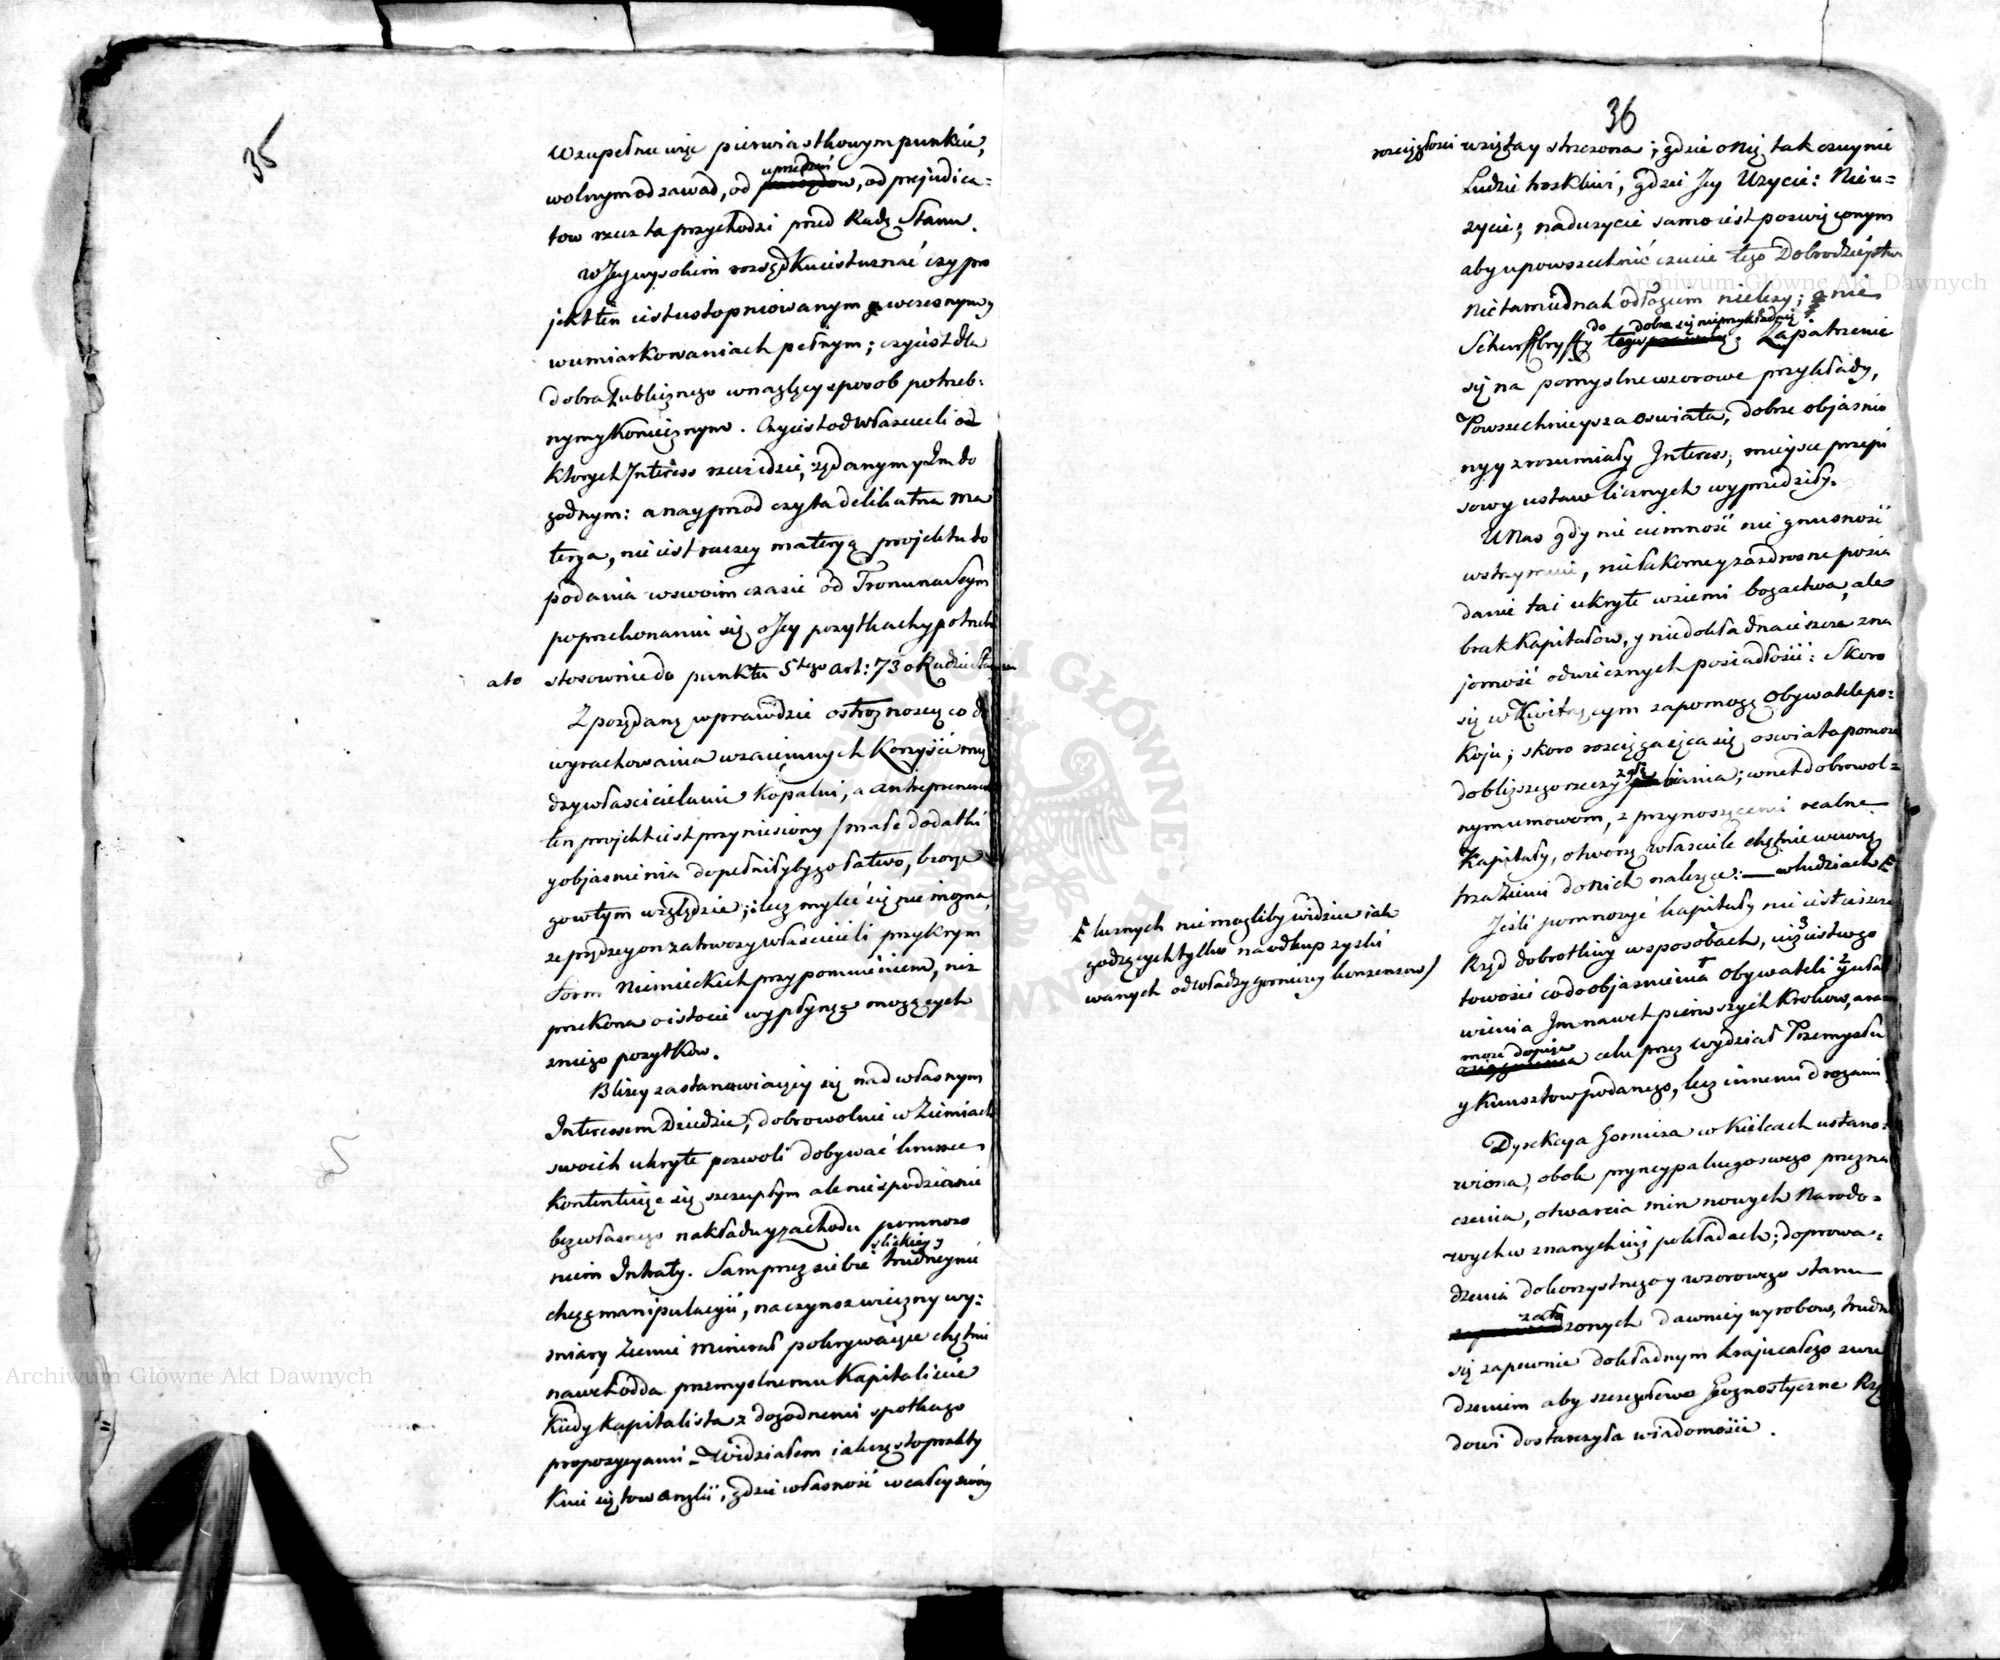 35
W zupełnie więc pierwiastkowym punkcie,
uprzedzeń
wolnym od zawad, od , od prejudica=
tow rzecz ta przychodzi przed Radę Stanu.
W Jey wysokim rozsądku iest uznać czy pro
jekt ten iest ustopniowanym wczesnym y
w umiarkowaniach pełnym; czy iest dla
dobra Publicznego w naglący sposob potrzeb=
nym y koniecznym. Czy iest od właścicieli od
ktorych Interess rzecz idzie, żądanym y Im do
godnym: a nayprzod czy ta delikatna ma
terya, nie iest raczey materyą projektu do
podania w swoim czasie od Tronu na Seym
po przekonaniu się o Jey pożytkach y potrzebie
ato stosownie do punktu 5tego Art: 73 o Radzie Stanu
Z pożądaną wprawdzie ostrożnością co do
wyrachowania wzaiemnych korzyści mię
dzy właścicielami kopalni, a antreprenerami
ten projekt iest przyniesiony / małe dodatki
y objasnienia dopełniłyby go łatwo, biorąc
go w tym względzie; lecz mylić się nie można,
że prędzey on zatrwoży właścicieli przykrym
form Niemieckich przypomnieniem, niż
przekona o istocie wypłynąć mogących
z niego pożytków.
Bliżey zastanawiaiący się nad własnym
Interessem Dziedzic, dobrowolnie w Ziemiach
swoich ukryte pozwoli dobywać kruszce,
kontentuiąc się szczupłym ale niespodzianie
bez własnego nakładu y zachodu pomnoże
śliskiey y
niem Intraty. Sam przez siebie trudney nie
chcąc manipulacyi, na czynsz wieczny wy=
miary Ziemie Minerał pokrywaiące chętnie
nawet odda przemysłnemu Kapitaliście
kiedy kapitalista z dogodnemi spotka go
propozycyami – Widziałem iak często prakty
kuie się to w Anglii, gdzie własność w całey swoiey
36
rozciągłości wzięta y strzeżona; gdzie o nię tak czuynie
Ludzie troskliwi, gdzie Jey Użycie: Nieu=
życie; nadużycie samo iest poswięconym
aby upowszechnić czucie tego Dobrodzieystwa
Nie tam iednak odłogiem nie leży; nie
do dobra się nie przykładaią
Schurff bryffy . Zapatrzenie
się na pomyslne wzorowe przykłady,
Powszechnieysza oswiata, dobrze objaśnio
ny y zrozumiały Interess, mieysce przepi
sow y ustaw licznych wyprzedziły.
U Nas gdy nie ciemność nie gnusność
wstrzymuie, nie łakome y zazdrosne posia
danie tai ukryte w ziemi bogactwa, ale
brak Kapitałow, y niedokładna ieszcze zna
jomość odwiecznych posiadłości: Skoro
się w Kwitnącym zapomogą Obywatele po=
koju; skoro rosciągaiąca się oswiata pomoże
zgłę
do bliższego rzeczy biania; wnet dobrowol=
nym umowom, z przynoszącemi realne
Kapitały, otworzą właściciele chętnie wewnę
trza Ziemi do nich należące: — w ludziach
Jeśli pomnożyć kapitały nie iest ieszcze
Rząd dobrotliwy w sposobach, uiścistwego
towość co do objaśnienia Obywateli y uła
twienia Im nawet pierwszych krokow,
może dopiąć
celu przez wydział Przemysłu
y Kunsztow podanego, lecz innemi drogami
Dyrekcya Gornicza w Kielcach ustano=
wiona, obok pryncypalnego swego przezna
czenia, otwarcia min nowych Narodo=
wych w znanych iuż pokładach; doprowa=
dzenia do korzystnego y wzorowego stanu
zało
żonych dawniey wyrobow, trudni
się zapewnie dokładnym kraju całego zwie
dzeniem aby szczegułowe Geognostyczne Rzą
dowi dostarczyła wiadomości.
lusnych nie mogliby widzieć iak
godzących tylko na odkup zyski
wanych od władzy gorniczey konsensow /
Archiwum Główne Akt Dawnych
Archiwum Główne Akt Dawnych